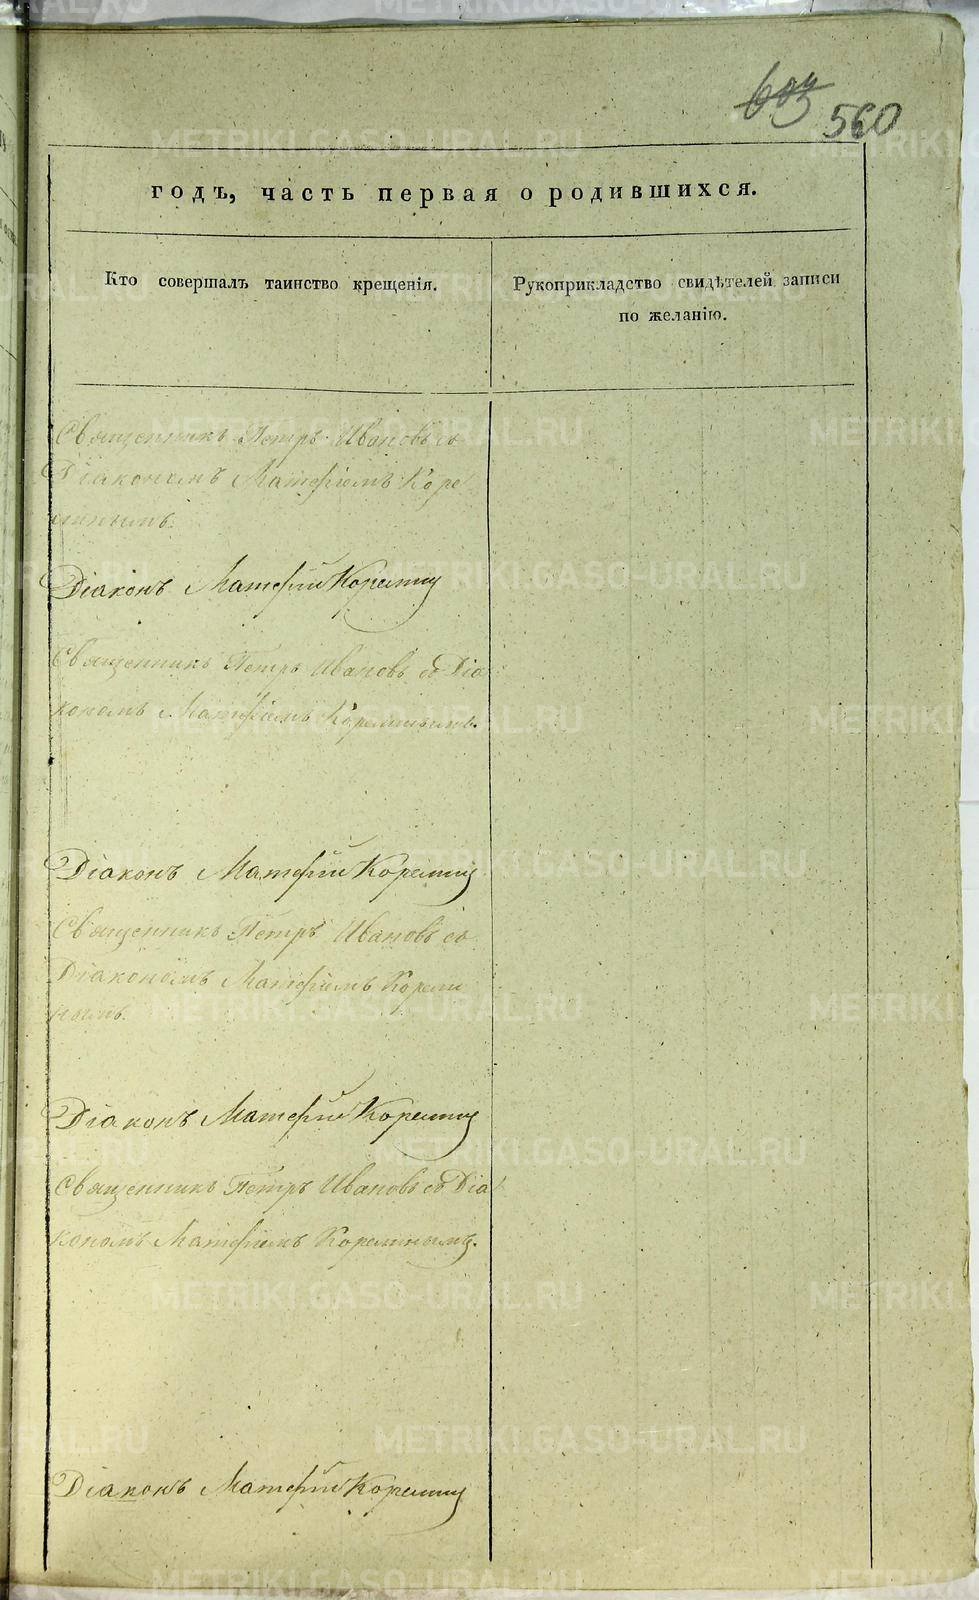 560
годъ, часть первая о родившихся.
Кто совершалъ таинство крещенія.
Рукоприкладство свидѣтелей записи
по желанію.
Священникъ Петръ Ивановъ съ
Діакономъ Матфіемъ Коре
Діаконъ Матфій
Священникъ Петръ Ивановъ съ Діа
кономъ Матфіемъ
Діаконъ Матфій
Священникъ Петръ Ивановъ съ
Діакономъ Матфіемъ
нымъ.
Діаконъ Матфій
Священникъ Петръ Ивановъ съ Діа
кономъ Матфіемъ
Діаконъ Матфій
METRIKI.GASO-URAL.RU